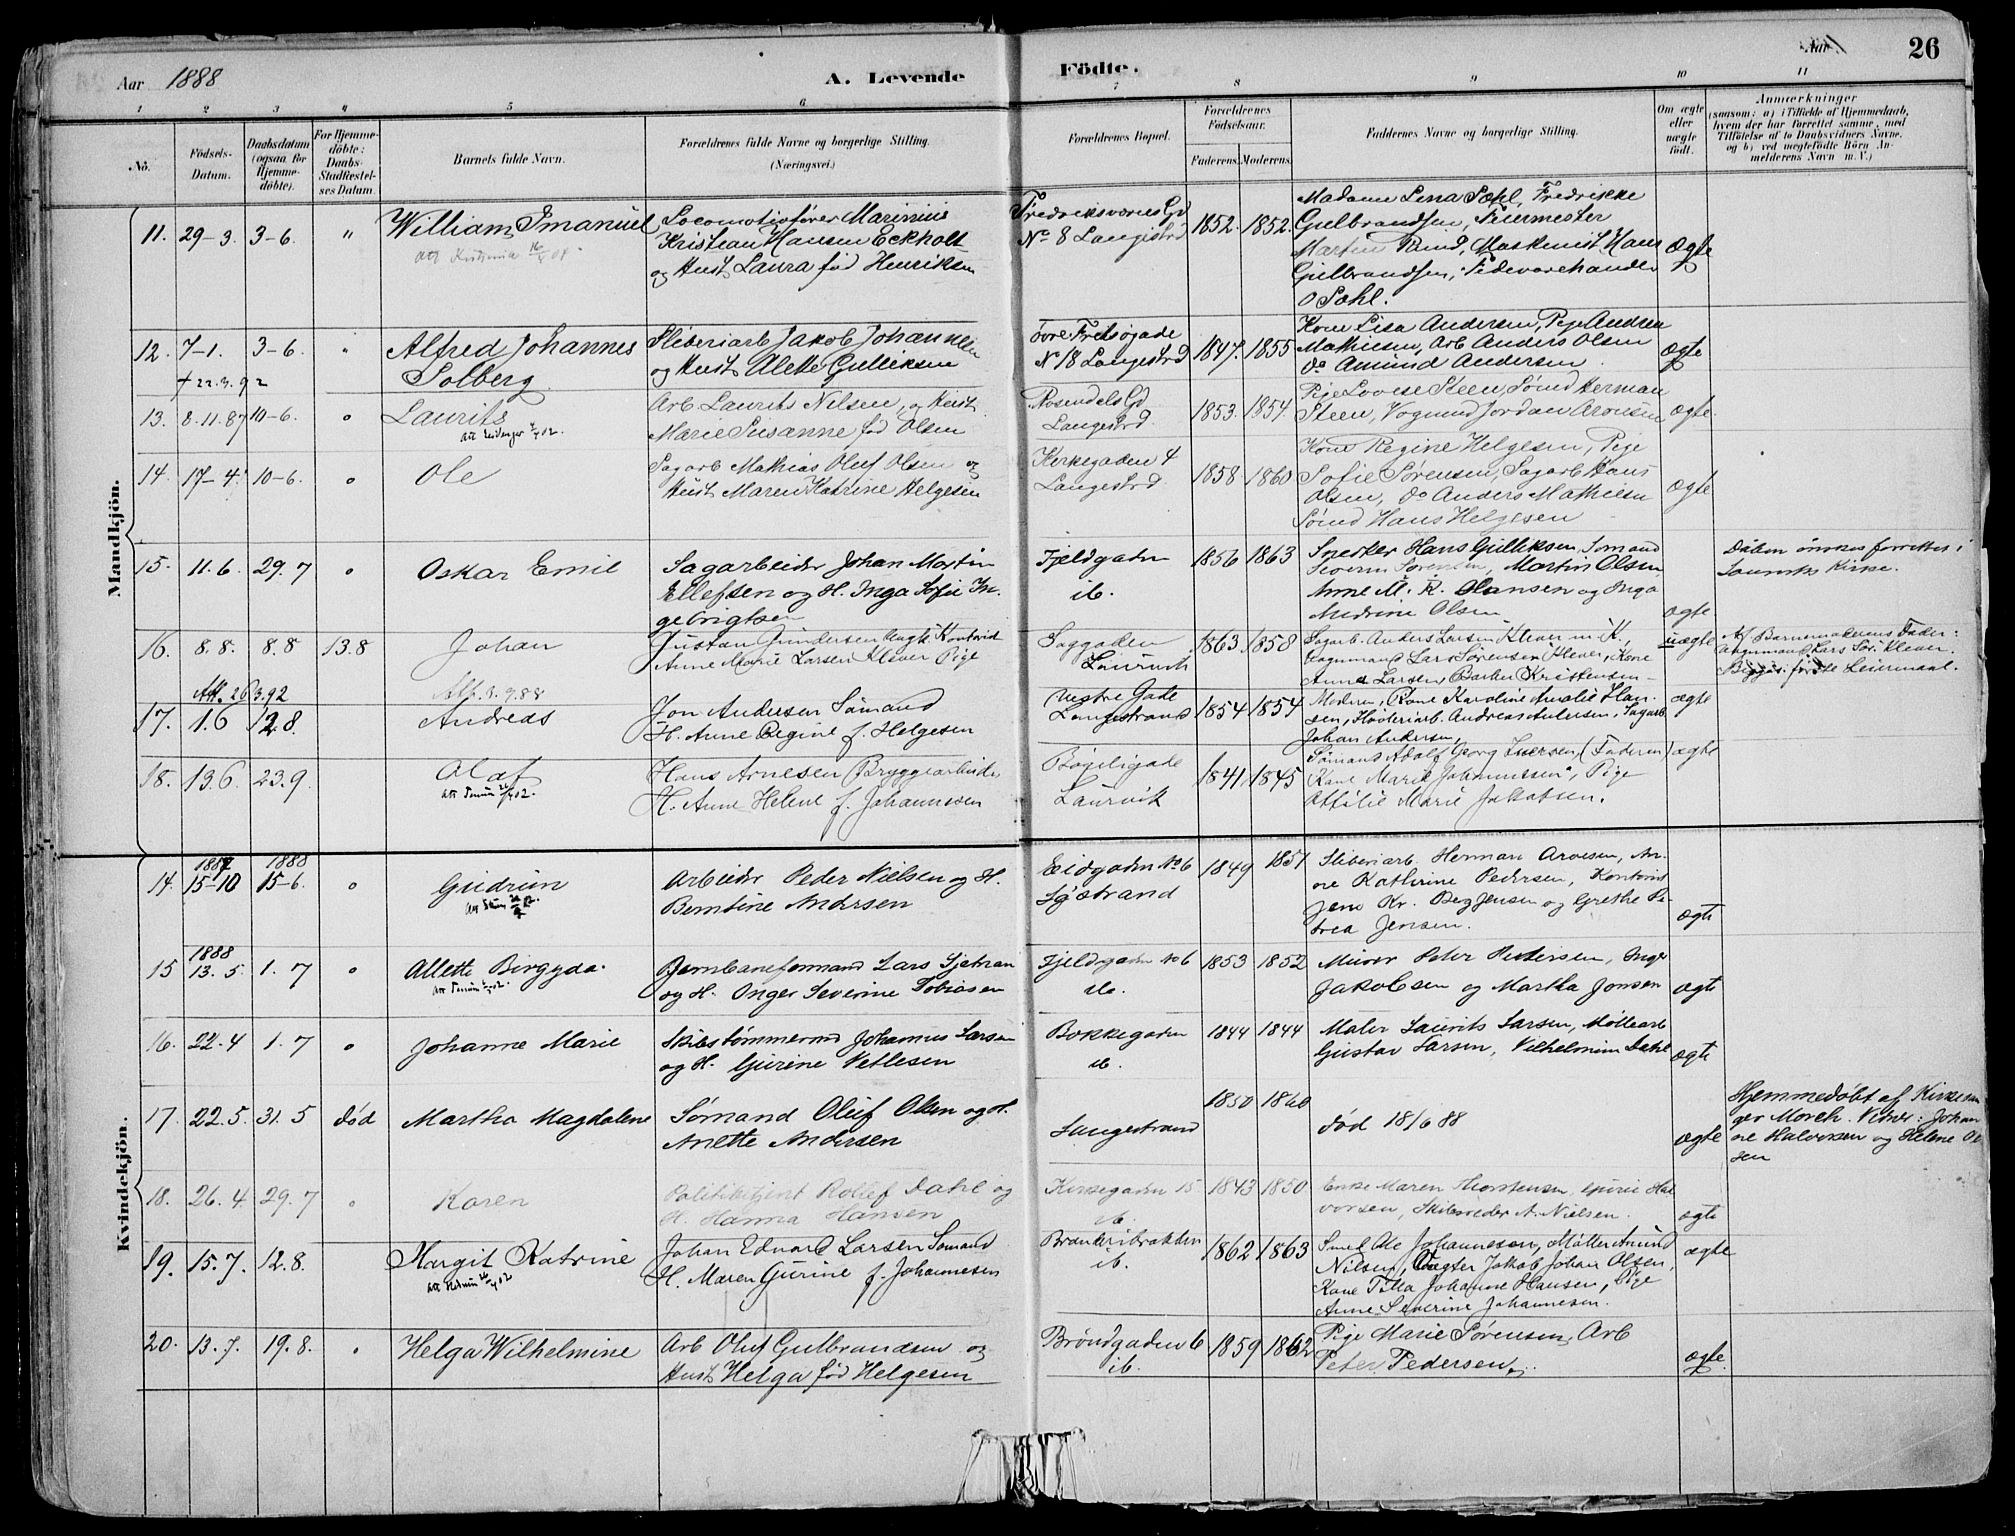 Aar 1888
A. Levende
Födte.
Aar
26
1 2 3 4 5 6 7 8 9 10 11
No.
Födsels-Datum.
Daabsdatum (ogsaa for Hjemmedöbte).
For Hjemmedöbte: Daabs-Stadfæstelses Datum.
Barnets fulde Navn.
Forældrenes fulde Navne og borgerlige Stilling.
(Næringsvei.)
Forældrenes Bopæl.
Forældrenes Födselsaar.
Faderens. Moderens.
Faddernes Navne og borgerlige Stilling.
Om ægte eller uægte födt.
Anmærkninger
(saasom: a) i Tilfælde af Hjemmedaab, hvem der har forrettet samme, med Tilföielse af to Daabsvidners Navne, og b) ved uægtefödte Börn Anmelderens Navn m. V.)
Mandkjön.
11. 29-3. 3-6. " William Imanuel
Locomotivfører Marinius
Kristian Hansen Eckholt
og Hust Laura fød Henriksen
Fredriksværns Gd
No 8 Langestrd
1852. 1852.
Madame Lena Sæhl, Fredrikke
Gulbrandsen, Feiermester
Martin Rind, Maskinist Hans
Gulbrandsen, Fedevarehandler
O Sæhl.
Ægte
12. 7-1. 3-6. " Alfred Johannes
Solberg
+ 22.3.92
Sliberiarb Jakob Johannesen
og Hust Alette Gulliksen
øvre Fritsøgade
N 18 Langestrd
1847. 1855
Kone Lisa Andersen, Pige Andrea
Mathiesen, Arb Anders Olsen
do Amund Andersen
ægte
13. 8.11.87 10-6. " Laurits
Arb Laurits Nilsen, og Hust
Marie Susanne fød Olsen
Rosendals Gd
Langestrd.
1853. 1854.
Pige Lovise Steen, Sømd Herman
Steen, Vognmd Jordan Aronsen
ægte
14. 17-4. 10-6. " Ole
Sagarb Mathias Oluf Olsen og
Hust Maren Katrine Helgesen
Kirkegaden 4
Langestrd.
1858 1860
Kone Regine Helgesen, Pige
Sofie Sørensen, Sagarb Hans
Olsen, do Anders Mathiesen
Sømd Hans Helgesen
ægte
15. 11.6. 29.7 " Oskar Emil
Sagarbeider Johan Martin
Ellefsen og H. Inga Sofie In-
gebrigtsen
Fjeldgaden
ib.
1856 1863
Snedker Hans Gulliksen, Sømand
Severin Sørensen, Martin Olsen,
Anne M. K. Hansen og Inga
Andrine Olsen
ægte
Daaben ønskes forrettet i
Laurviks Kirke.
16. 8.8. 8.8 13.8 Johan
Gustav Gundersen Ungk. Kontorist
Anne Marie Larsen Klever Pige
Saggaden
Laurvik
1863 1858
Sagarb. Anders Larsen Klever m. K.,
Vognmand Lars Sørensen Klever, Kone
Anne Larsen, Barber Kristensen
uægte
Af Barnemoderens Fader:
Vognmand Lars Sør. Klever.
Begges første Leiermaal.
Att. 26/3.92
Att. 3.9.88
17. 1.6 12.8. Andreas
Jon Andersen Sømand
H. Anne Regine f. Helgesen
Vestre Gade
Langestrand
1854 1854
Moderen, Kone Karoline Amalie Han-
sen, Høvleriarb. Andreas Andersen, Sagarb.
Johan Andersen,
ægte
18. 13.6 23.9. Olaf
Hans Arnesen Bryggearbeider
H. Anne Helene f. Johannssen
Bøgeligade
Laurvik
1841 1845
Sømand Adolf Georg Iversen, (Faderen)
Kone Marie Johannessen, Pige
Ottilie Marie Jakobsen.
ægte
Kvindekjön.
1887 1888
14. 15-10 15-6. " Gudrun
Arbeider Peder Nielsen og H.
Berntine Andersen
Eidgaden No 6
Langestrand
1849 1851
Sliberiarb. Herman Aroesen, An-
ne Kathrine Pedersen, Kontorist
Jens Kr. Beggensen og Grethe Pe-
trea Jensen.
ægte
1888
15 13.5. 1.7 " Allette Birgyda.
Jernbaneformand Lars Sjetnan
og H. Inger Severine Tobiasen
Fjeldgaden No 6
ib.
1853 1852
Murer Peter Pedersen, Inger
Jakobsen og Martha Jonsen
ægte
16. 22.4 1.7 " Johanne Marie
Skibstømmermd Johannes Larsen
og H. Gurine Vetlesen
Bokkegaden
ib.
1844 1844
Maler Laurits Larsen, Møllearb
Gustav Larsen, Vilhelmine Dahl
ægte
17. 22.5. 31.5 død Martha Magdalene
Sømand Oluf Olsen og H.
Anette Andersen
Langestrand
1850 1860
død 18/6 88
ægte
Hjemmedøbt af Kirkesan-
ger Morch. Vidner: Johan-
ne Halvorsen og Helene Ol-
sen
18. 26.4 29.7 " Karen
Politibetjent Rollef Dahl og
H. Hanna Hansen
Kirkegaden 15
ib.
1843 1850
Enke Maren Thorstensen, Gurie Hal-
vorsen, Skibsreder A. Nielsen.
ægte
19. 15.7. 12.8. Margit Katrine
Johan Edvard Larsen Sømand
H. Maren Gurine f. Johannesen
ib.
1862 1863
Smed Ole Johannesen, Møller Amund
Nilsen, Vægter Jakob Johan Olsen,
Kone Tilla Johanne Hansen, Pige
Anne Severine Johannesen.
ægte
20. 13.7. 19.8. " Helga Wilhelmine
Arb Oluf Gulbrandsen og
Hust Helga fød Helgesen
Brøndgaden 6
ib.
1859 1862
Pige Marie Sørensen, Arb
Peter Pedersen
ægte.